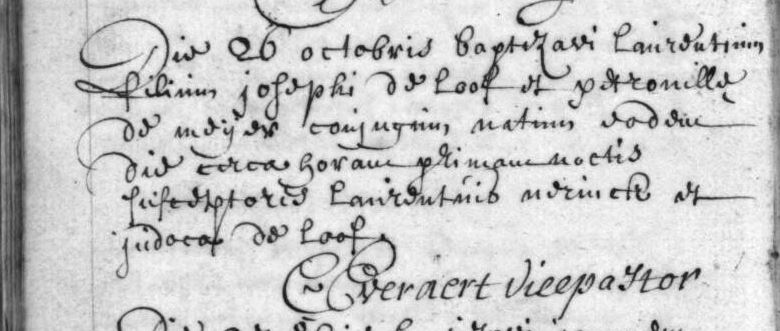 Die 26 octobris baptizavi laurentium
filium josephi de loof et petronillę
de meijer conjugum natum eodem
die circa horam primam noctis
susceptores laurentius nerinck et
judoca de loof
C Everaert vicepastor